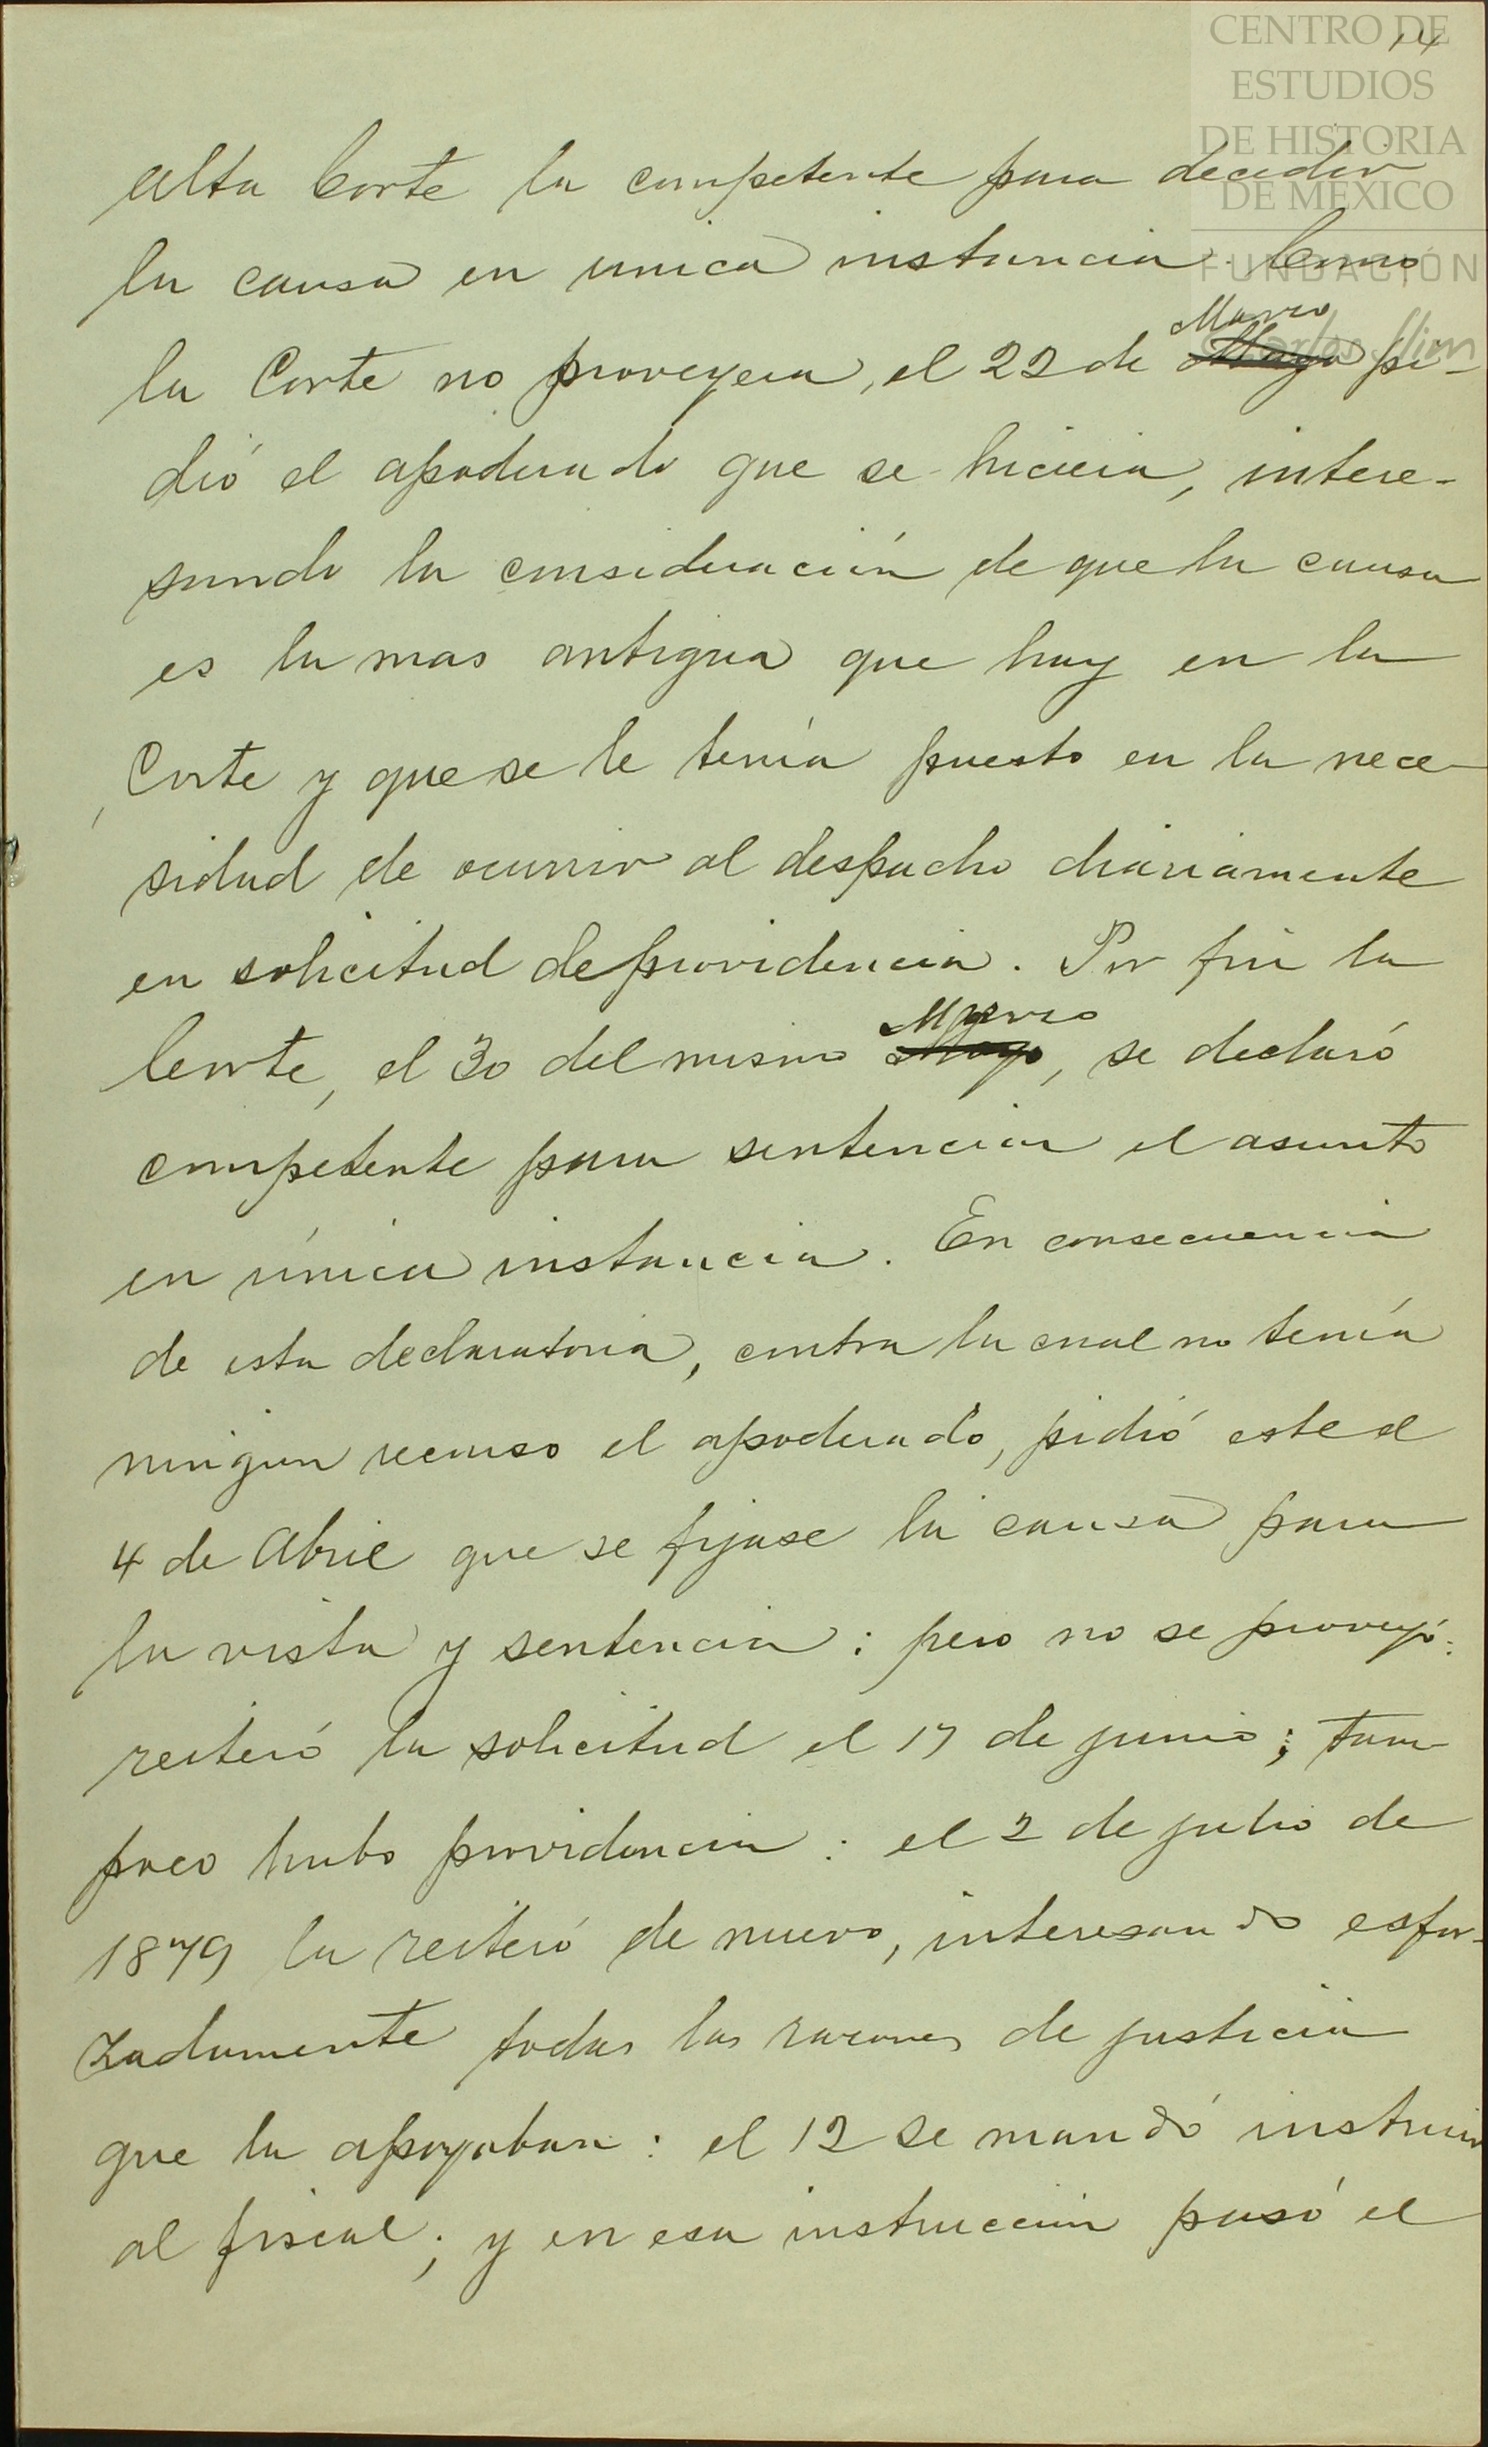 CENTRO DE
ESTUDIOS
DE HISTORIA
DE MÉXICO
FUNDACIÓN
Carlos Slim
14
alta Corte la competente para decidir
la causa en unica instancia. Como
la Corte no proveyera, el 22 de Marzo Mayo pi-
dió el apoderado que se hiciera, intere-
sando la consideración de que la causa
es la mas antigua que hay en la
Corte y que se le tenía puesto en la nece-
sidad de ocurrir al despacho diariamente
en solicitud de providencia. Por fin la
Corte, el 30 del mismo Marzo Mayo, se declaró
competente para sentenciar el asunto
en única instancia. En consecuencia
de esta declaratoria, contra la cual no tenía
ningun recurso el apoderado, pidió este el
4 de Abril que se fijase la causa para
la vista y sentencia: pero no se proveyó:
reiteró la solicitud el 17 de junio; tam
poco hubo providencia: el 2 de julio de
1879 la reiteró de nuevo, interesando esfor-
zadamente todas las razones de justicia
que la apoyaban: el 12 se mandó instruir
al fiscal; y en esa instrucción pasó el